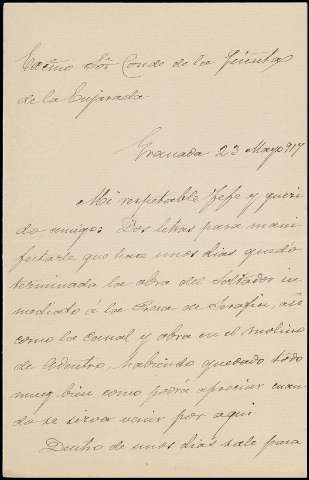 Excmo Sor Conde de las Infantas
de la Enjarada
Granada 23 Mayo 917
Mi respetable Jefe y queri
do amigo: Dos letras para mani
festarle que hace unos dias quedó
terminada la obra del Saltador in
mediato á la Presa de Serafin, asi
como la canal y obra en el Molino
de Adentro, habiendo quedado todo
muy bien como podrá apreciar cuan
do se sirva venir por aqui
Dentro de unos dias sale para